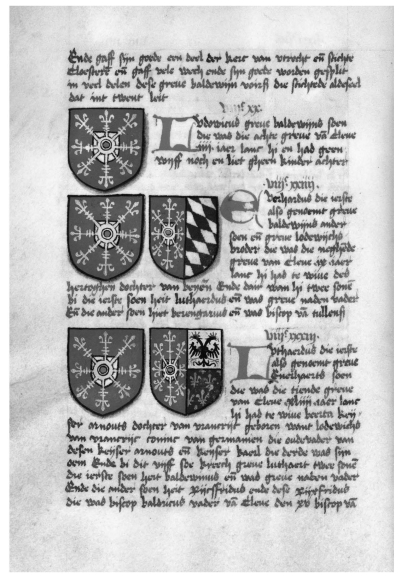 Ende gaff syn goede een deel der kerc van utrecht en stichte
Cloestere en gaff vele wech ende syn goede worden gesplit
in veel delen dese greve baldewijn voirs die stichtede aldeseel
dat int twent leit
viijc xx
Ludowicus greve baldewijns soen
die was die achte greve va Cleve
iiij iaer lanc hi en had geen
wijff noch en liet gheen kinder achter
viijc xxiiij
Everhardus die ierste
also genoemt greve
baldewijns ander
soen en greve lodewijchs
broder die was die neghede
greve van Cleve iaer
lanc hi had te wive des
hertoghen dochter van beyen Ende dair wan hi twee sone
die ierste soen heit luthaerdus en was greve naden vader
En die ander soen hiet berengarius en was biscop va tullensi
Luthardus die ierste
also genoemt greve
Everhaerts soen
die was die tiende greve
van Cleve iaer lanc
hi had te wive berta key
ser arnouts dochter van vrancrijc geboren want lodewichs
van vrancrijc coninc van germanien die oudevader van
desen keyser arnouts en keyser karel die derde was syn
oem Ende bi dit wijff soe kreech greve luthaert twee sone
die ierste soen heit baldewinus en was greve naden vader
Ende die ander soen heit ende dese
die was biscop baldricus vader va Cleve den xv biscop va